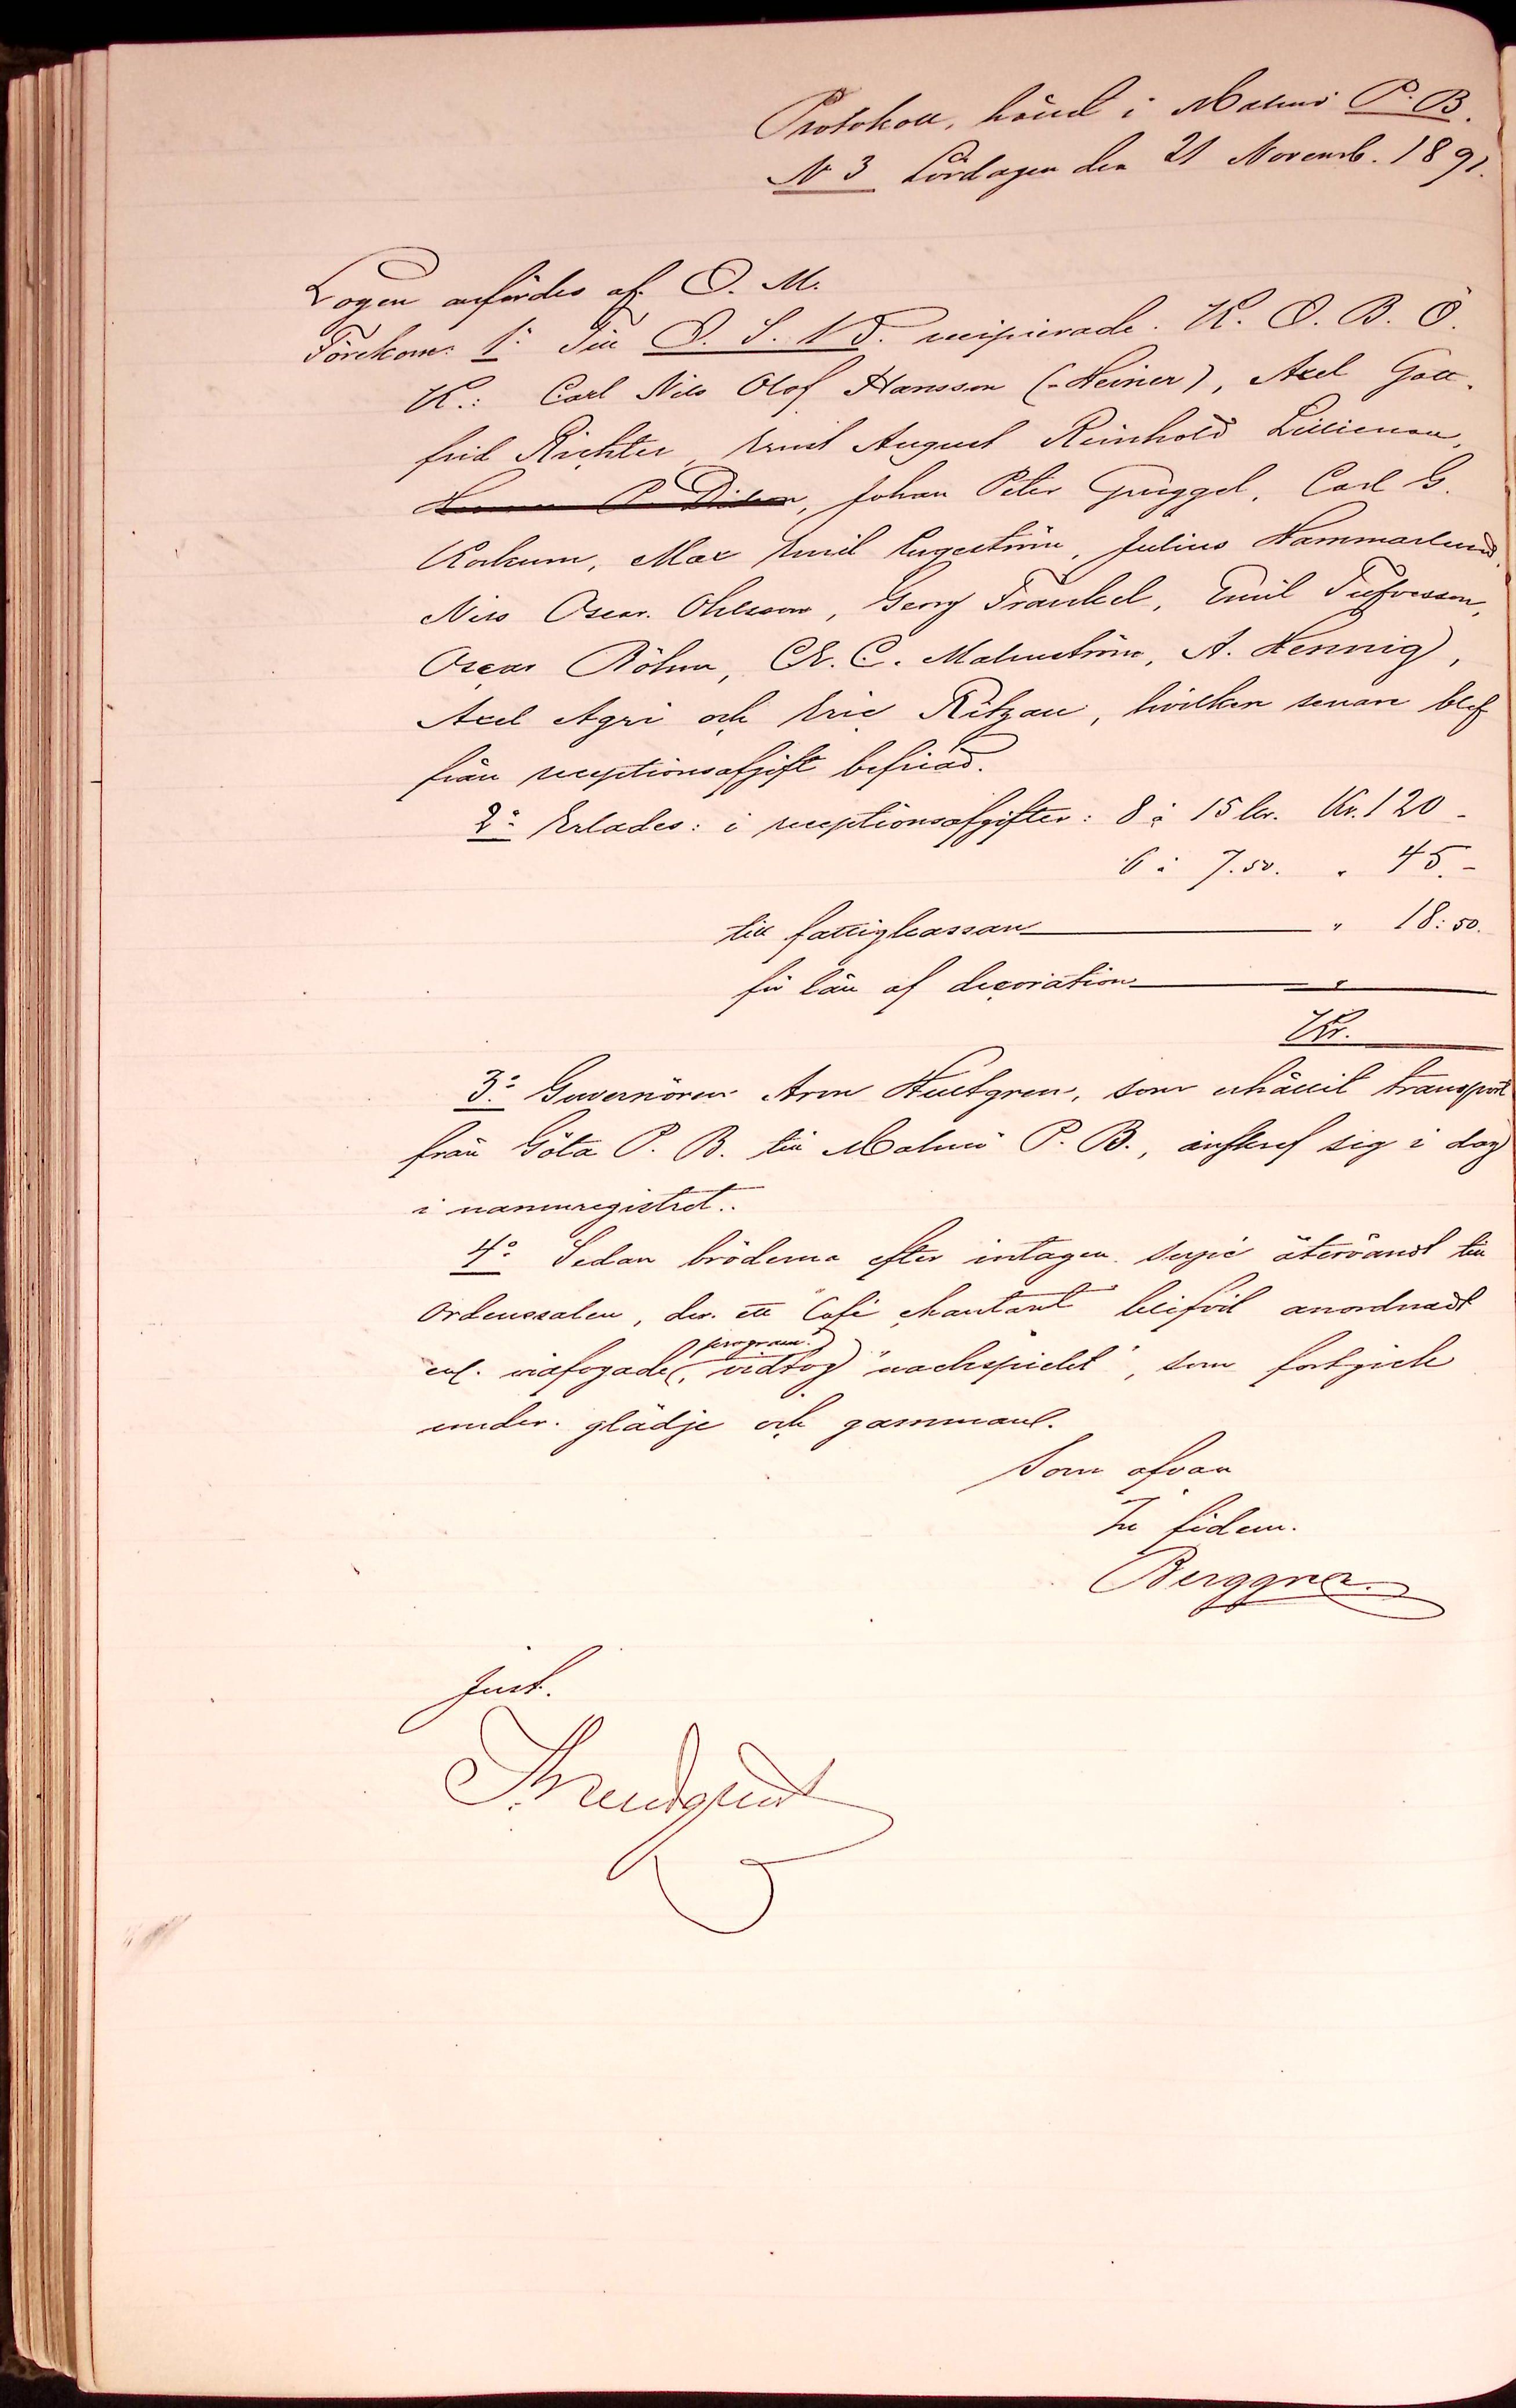 Protokoll, hållet i Malmö P. B.
N 3 Lördagen den 21 Novemb. 1891.
Logen anfördes af O. M.
Förekom: 1º Till O. S. N D. recipierade K. O. B. Ö.
K.: Carl Nils Olof Hansson (-Heiner), Axel Gott-
frid Richter, Ernst August Reinhold Lillienau,
Johan Peter Gruggel, Carl G.
Korkum, Max Emil Engeström, Julius Hammarlund,
Nils Oscar Ohlsson, Georg Fränkel, Emil Tufvesson,
Oscar Böhm, Chr. C. Malmström, A. Hennig,
Axel Agri och Eric Ritzau, hvilken senare blef
från receptionsafgift befriad.
2º Erlades: i receptionsafgifter: 8 à 15 kr. Kr. 120 -
6 à 7.50. " 45.-
till fattigkassan " 18:50.
för lån af decoration "
Kr.
3º Guvernören Aron Hultgren, som erhållit transport
från Göta P. B. till Malmö P. B., inskref sig i dag
i namnregistret.
4º Sedan bröderna efter intagen supé återvändt till
ordenssalen, der ett "Café chantant" blifvit anordnadt
enl. vidfogade program, vidtog "nachspielet", som fortgick
under glädje och gamman.
Som ofvan
In fidem.
Berggren.
Just.